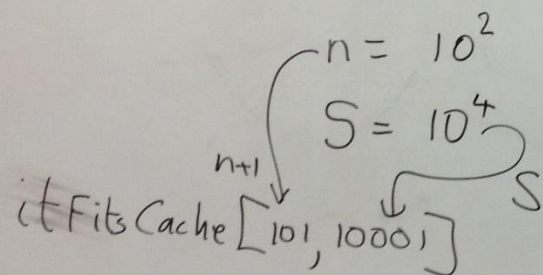 n = 10²
S = 10⁴
n+1
S
itFitsCache[101, 10001]